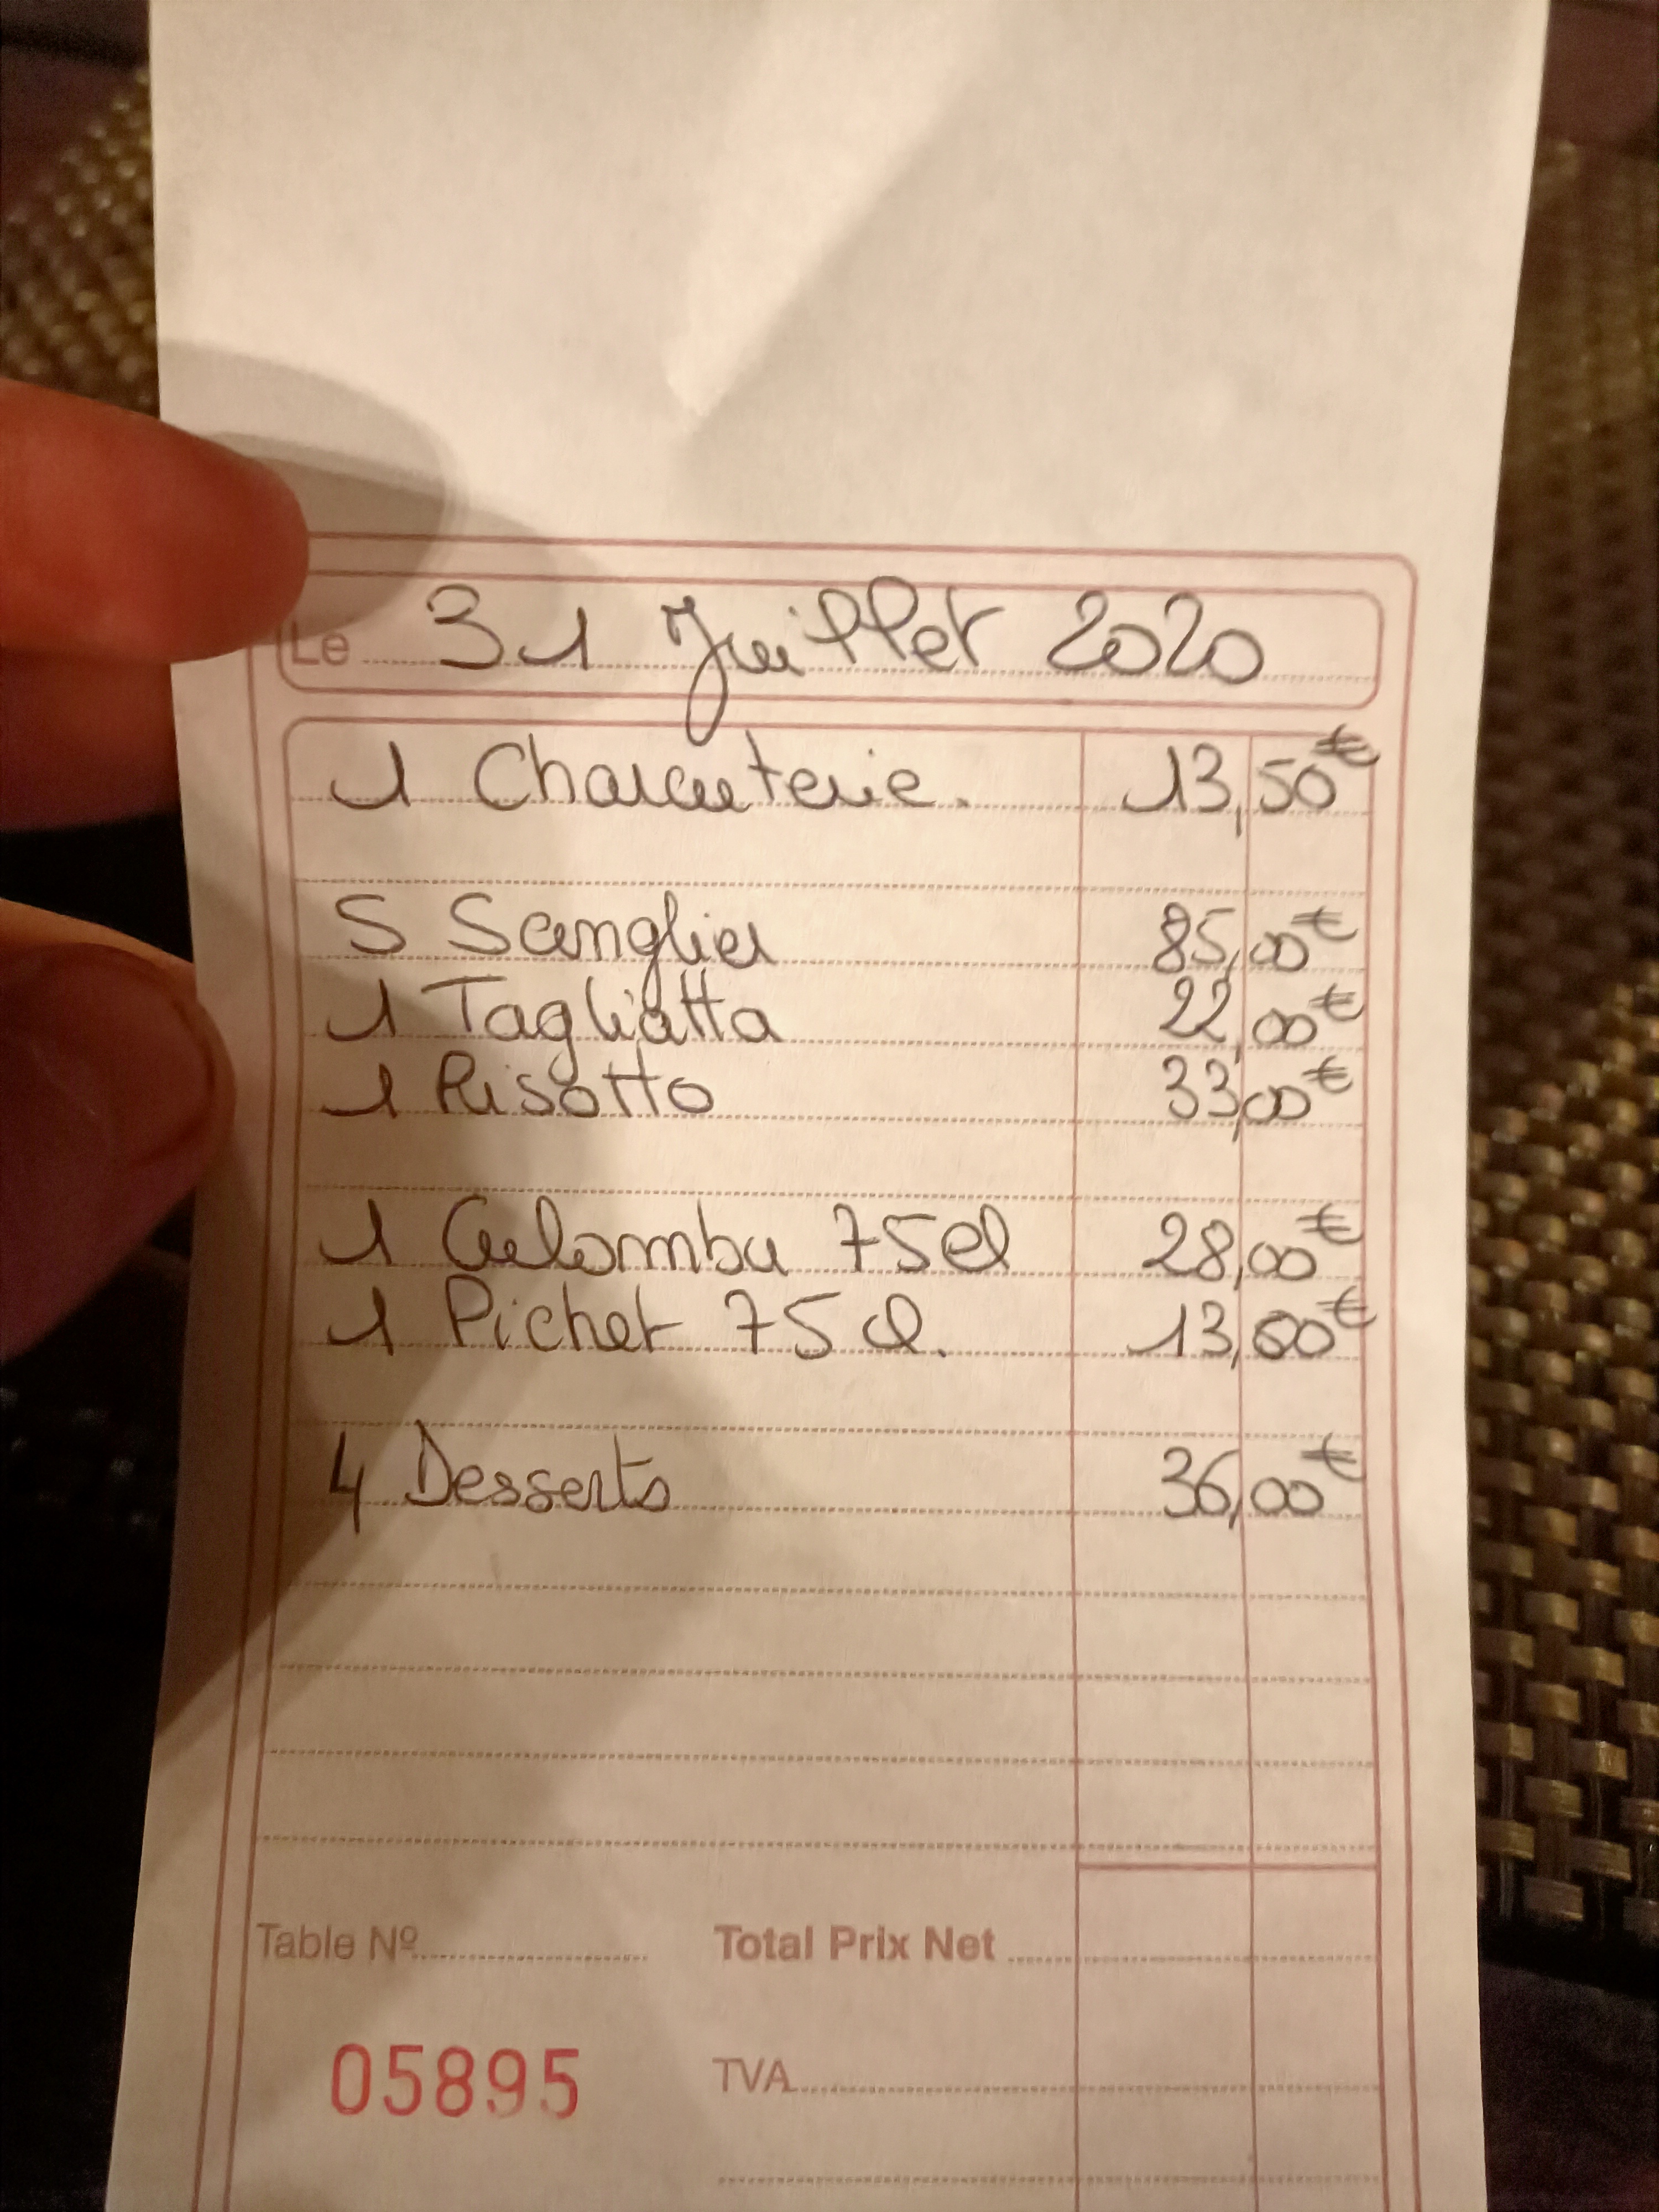 Le 31 Juillet 2020
1 Charcuterie. 13,50€
5 Sanglier 85,00€
1 Tagliatta 22,00€
1 Risotto 33,00€
1 Culombu 75cl 28,00€
1 Pichet 75cl. 13,00€
4 Desserts 36,00€
Table Nº Total Prix Net
05895 TVA